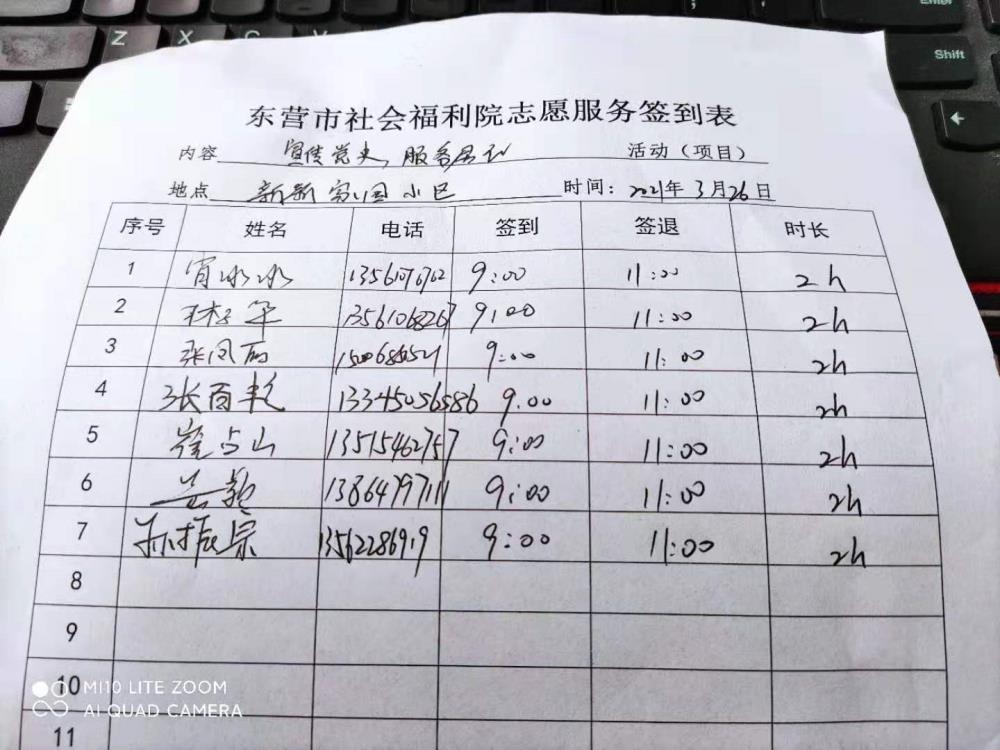 Z X C
Enter
Shift
东营市社会福利院志愿服务签到表
内容 宣传党史,服务居 活动（项目）
地点 新新家园小区 时间：2021年3月26日
序号 姓名 电话 签到 签退 时长
1 冰冰 9:00 11:00 2h
2 华 9:00 11:00 2h
3 张凤 9:00 11:00 2h
4 张百 13345056586 9:00 11:00 2h
5 崔占山 13515462757 9:00 11:00 2h
6 颖 13864797111 9:00 11:00 2h
7 孙振宗 13562286919 9:00 11:00 2h
8
9
10
11
MI 10 LITE ZOOM
AI QUAD CAMERA